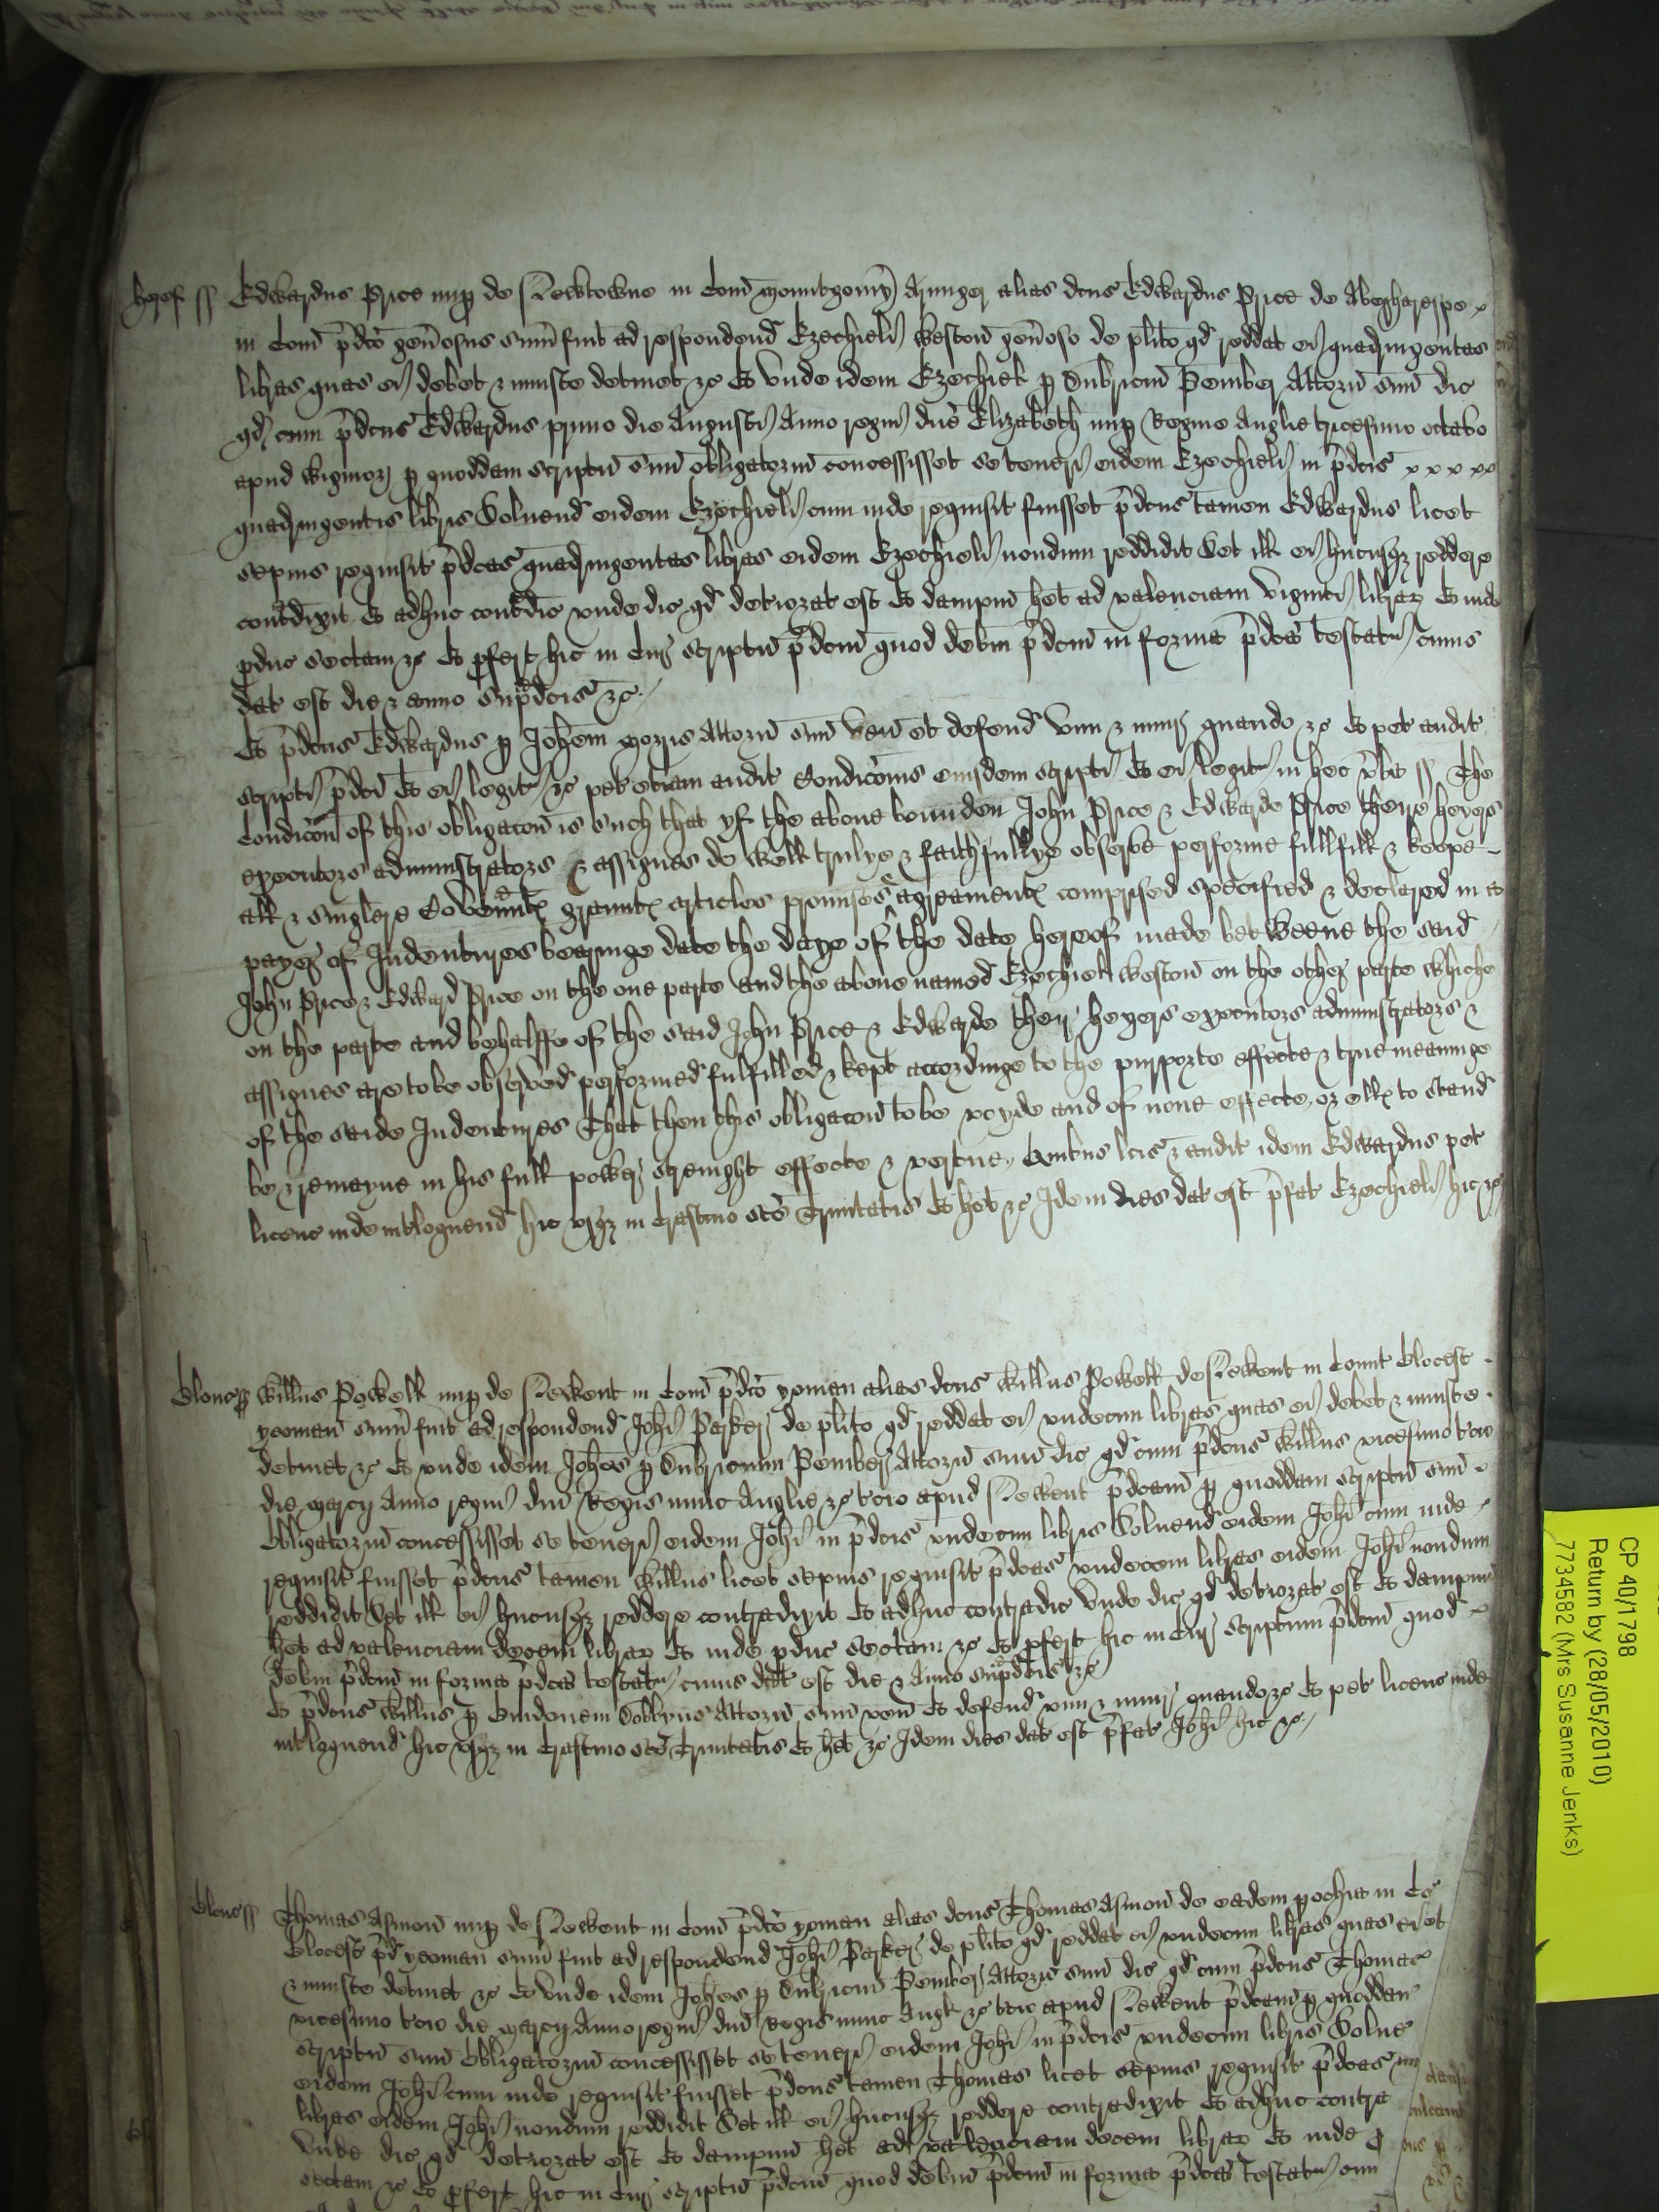 Heref ss Edwardus Price nup de Newtowne in Com Mountgomy Armiger alias dcus Edwardus Price de
in Com pdco genosus sum fuit ad respondend Ezechieli Weston genoso de plito qd reddat ei quadringentas
libras quas ei debet & iniuste detinet &c Et unde idem Ezechiel p Dubricium Pember Attorn suum dic
qd cum pdcus Edwardus primo die Augusti Anno regni dne Elizabeth nup Regine Anglie tricesimo octavo
apud Wigmor p quoddam scriptu suu obligatorium concessisset se teneri eidem Ezechieli in pdcis
quadringentis libris Solvend eidem Ezechieli cum inde requisit fuisset pdcus tamen Edwardus licet
sepius requisit pdcas quadringentas libras eidem Ezechieli nondum reddidit Set ill ei hucusqz reddere
contdixit Et adhuc contdic unde dic qd deteriorat est Et dampnu het ad valenciam viginti librar Et inde
pduc sectam &c Et pfert hic in Cur scriptu pdcm quod debm pdcm in forma pdca testatur cuius
dat est die & anno supdcis &c
Et pdcus Edwardus p Johem Morris Attorn suu ven et defend vim & iniur quando &c Et pet audit
scripti pdci Et ei legit &c pet etiam audit Condicois eiusdem scripti Et ei legit in hec vba ss The
Condicon of this obligacon is such that yf the above bounden John Price & Edwarde Price theire heyers
executors administrators & assignes do well trulye & faithfullye observe performe fullfill & keepe
all & singlere Covennts graunts articles promises agreaments comprised specified & declared in a
payer of Indentures bearinge date the daye of the date hereof made betweene the said
John Price & Edward Price on the one parte and the above named Ezechiell Weston on the other parte whiche
on the parte and behalffe of the said John Price & Edwarde their heyers executors administrators &
assignes are to be observed performed fulfilled & kept accordinge to the purporte effecte & true meaninge
of the saide Indentures That then this obligacon to be voyde and of none effecte, or ells to stand
be & remayne in his full power strenght effecte & vertue, Quibus lcis & audit idem Edwardus pet
licenc inde intloquend hic usqz in Crastino sce Trinitatis Et het &c Idem dies dat est pfat Ezechieli hic &c
Glouc ss Willus Powell nup de Newent in Com pdco yoman alias dcus Willus Powell de Newent in Comit Glocest
yeoman sum fuit ad respondend Johi Parker de plito qd reddat ei undecim libras quas ei debet & iniuste
detinet &c Et unde idem Johes p Dubricium Pember Attorn suu dic qd cum pdcus Willus vicesimo tcio
die Marcij Anno regni dni Regis nunc Anglie &c tcio apud Newent pdcam p quoddam scriptu suu
obligatoriu concessisset se teneri eidem Johi in pdcis undecim libris Solvend eidem Johi cum inde
requisit fuisset pdcus tamen Willus licet sepius requisit pdcas undecem libras eidem Johi nondum
reddidit Set ill ei hucusqz reddere contradixit Et adhuc contradic Unde dic qd deteriorat est Et dampnu
het ad valenciam decem librar Et inde pduc sectam &c Et pfert hic in Cur scriptum pdcm quod
debm pdcm in forma pdca testatur cuius dat est die & Anno supdcis &c
Et pdcus Willus p Guidonem Dobbyns Attorn suu ven Et defend vim & iniur quando &c Et pet licenc inde
intloquend hic usqz in Crastino sce Trinitatis Et het &c Idem dies dat est pfat Johi hic &c
Glouc ss Thomas Asmon nup de Newent in Com pdco yoman alias dcus Thomas Asmon de eadem pochia in Co
Glocest pd yeoman sum fuit ad respondend Johi Parker de plito qd reddat ei undecim libras quas ei
& iniuste detinet &c Et Unde idem Johes p Dubricium Pember Attorn suu dic qd cum pdcus Thomas
vicesimo tcio die Marcij Anno regni dni Regis nunc Angl &c tcio apud Newent pdcam p quoddam
scriptu suu obligatoriu concessisset se teneri eidem Johi in pdcis undecim libris Solve
eidem Johi cum inde requisit fuisset pdcus tamen Thomas licet sepius requisit pdcas un
libras eidem Johi nondum reddidit Set ill ei hucusqz reddere contradixit Et adhuc contra
Unde dic qd deteriorat est Et dampnu het ad valenciam decem librar Et inde p
sectam &c Et pfert hic in Cur scriptu pdcm quod debm pdcm in forma pdca testatur cuiu
CP 40/1798
Return by (28/05/2010)
7734582 (Mrs Susanne Jenks)